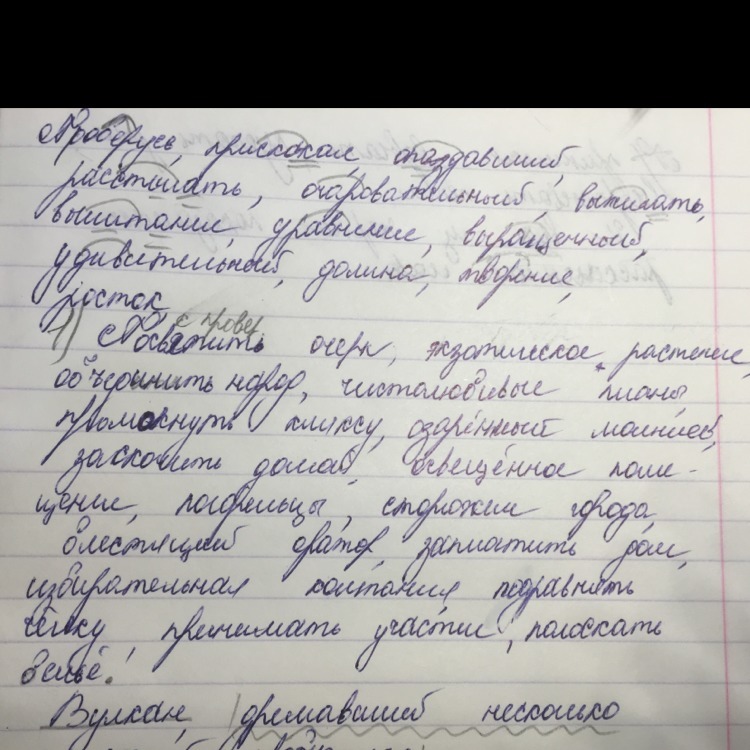 Проберусь, прискакал, опоздавший,
расстилать, очаровательный, вытирать,
вычитание, уравнение, выращенный,
удивительный, долина, творение,
росток
1) с провер
Посвятить очерк, экзотическое растение,
объединить народ, честолюбивые планы
промокнуть кляксу, озарённый молнией,
заскочить домой, освещённое поме-
щение, погорельцы, сторожил города
блестящий оратор, заплатить дом,
избирательная компания подравнять
чёлку, принимать участие, полоскать
бельё.
Вулкан, дремавший несколько